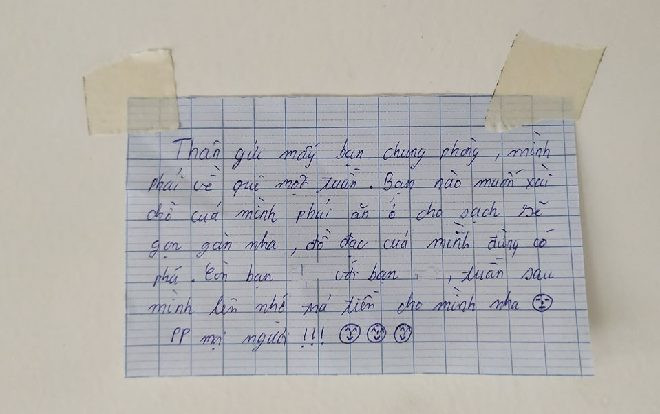 Thân gửi mấy bạn chung phòng, mình
phải về quê một tuần. Bạn nào muốn xài
chỗ của mình phải ăn ở cho sạch sẽ
gọn gàn nha, đồ đạc của mình đừng có
phá. Còn bạn với bạn , tuần sau
mình lên nhớ trả tiền cho mình nha
PP mọi người !!!